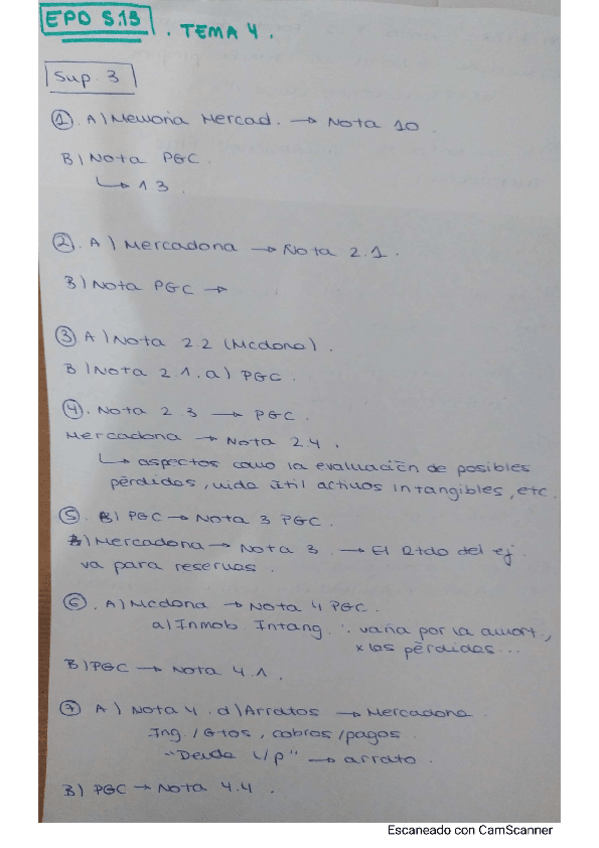 EPD S.13 . TEMA 4 .
Sup. 3
①. A) Memoria Mercad. → Nota 10.
B) Nota PGC.
↳ 13.
②. A) Mercadona → Nota 2.1.
B) Nota PGC →
③ A) Nota 2.2 (Mcdona).
B) Nota 2.1.a) PGC.
④. Nota 2.3 → PGC.
Mercadona → Nota 2.4.
↳ aspectos como la evaluación de posibles
pérdidas, vida útil activos intangibles, etc.
⑤. B) PGC → Nota 3 PGC.
A) Mercadona → Nota 3. → El Rtdo del ej.
va para reservas.
⑥. A) Mcdona → Nota 4 PGC.
a) Inmob. Intang. : varía por la amort.,
x las pérdidas...
B) PGC → Nota 4.1.
⑦ A) Nota 4. d) Arratos → Mercadona.
Ing./Gtos, cobros/pagos.
"Deuda L/P" → arrato.
B) PGC → Nota 4.4.
Escaneado con CamScanner